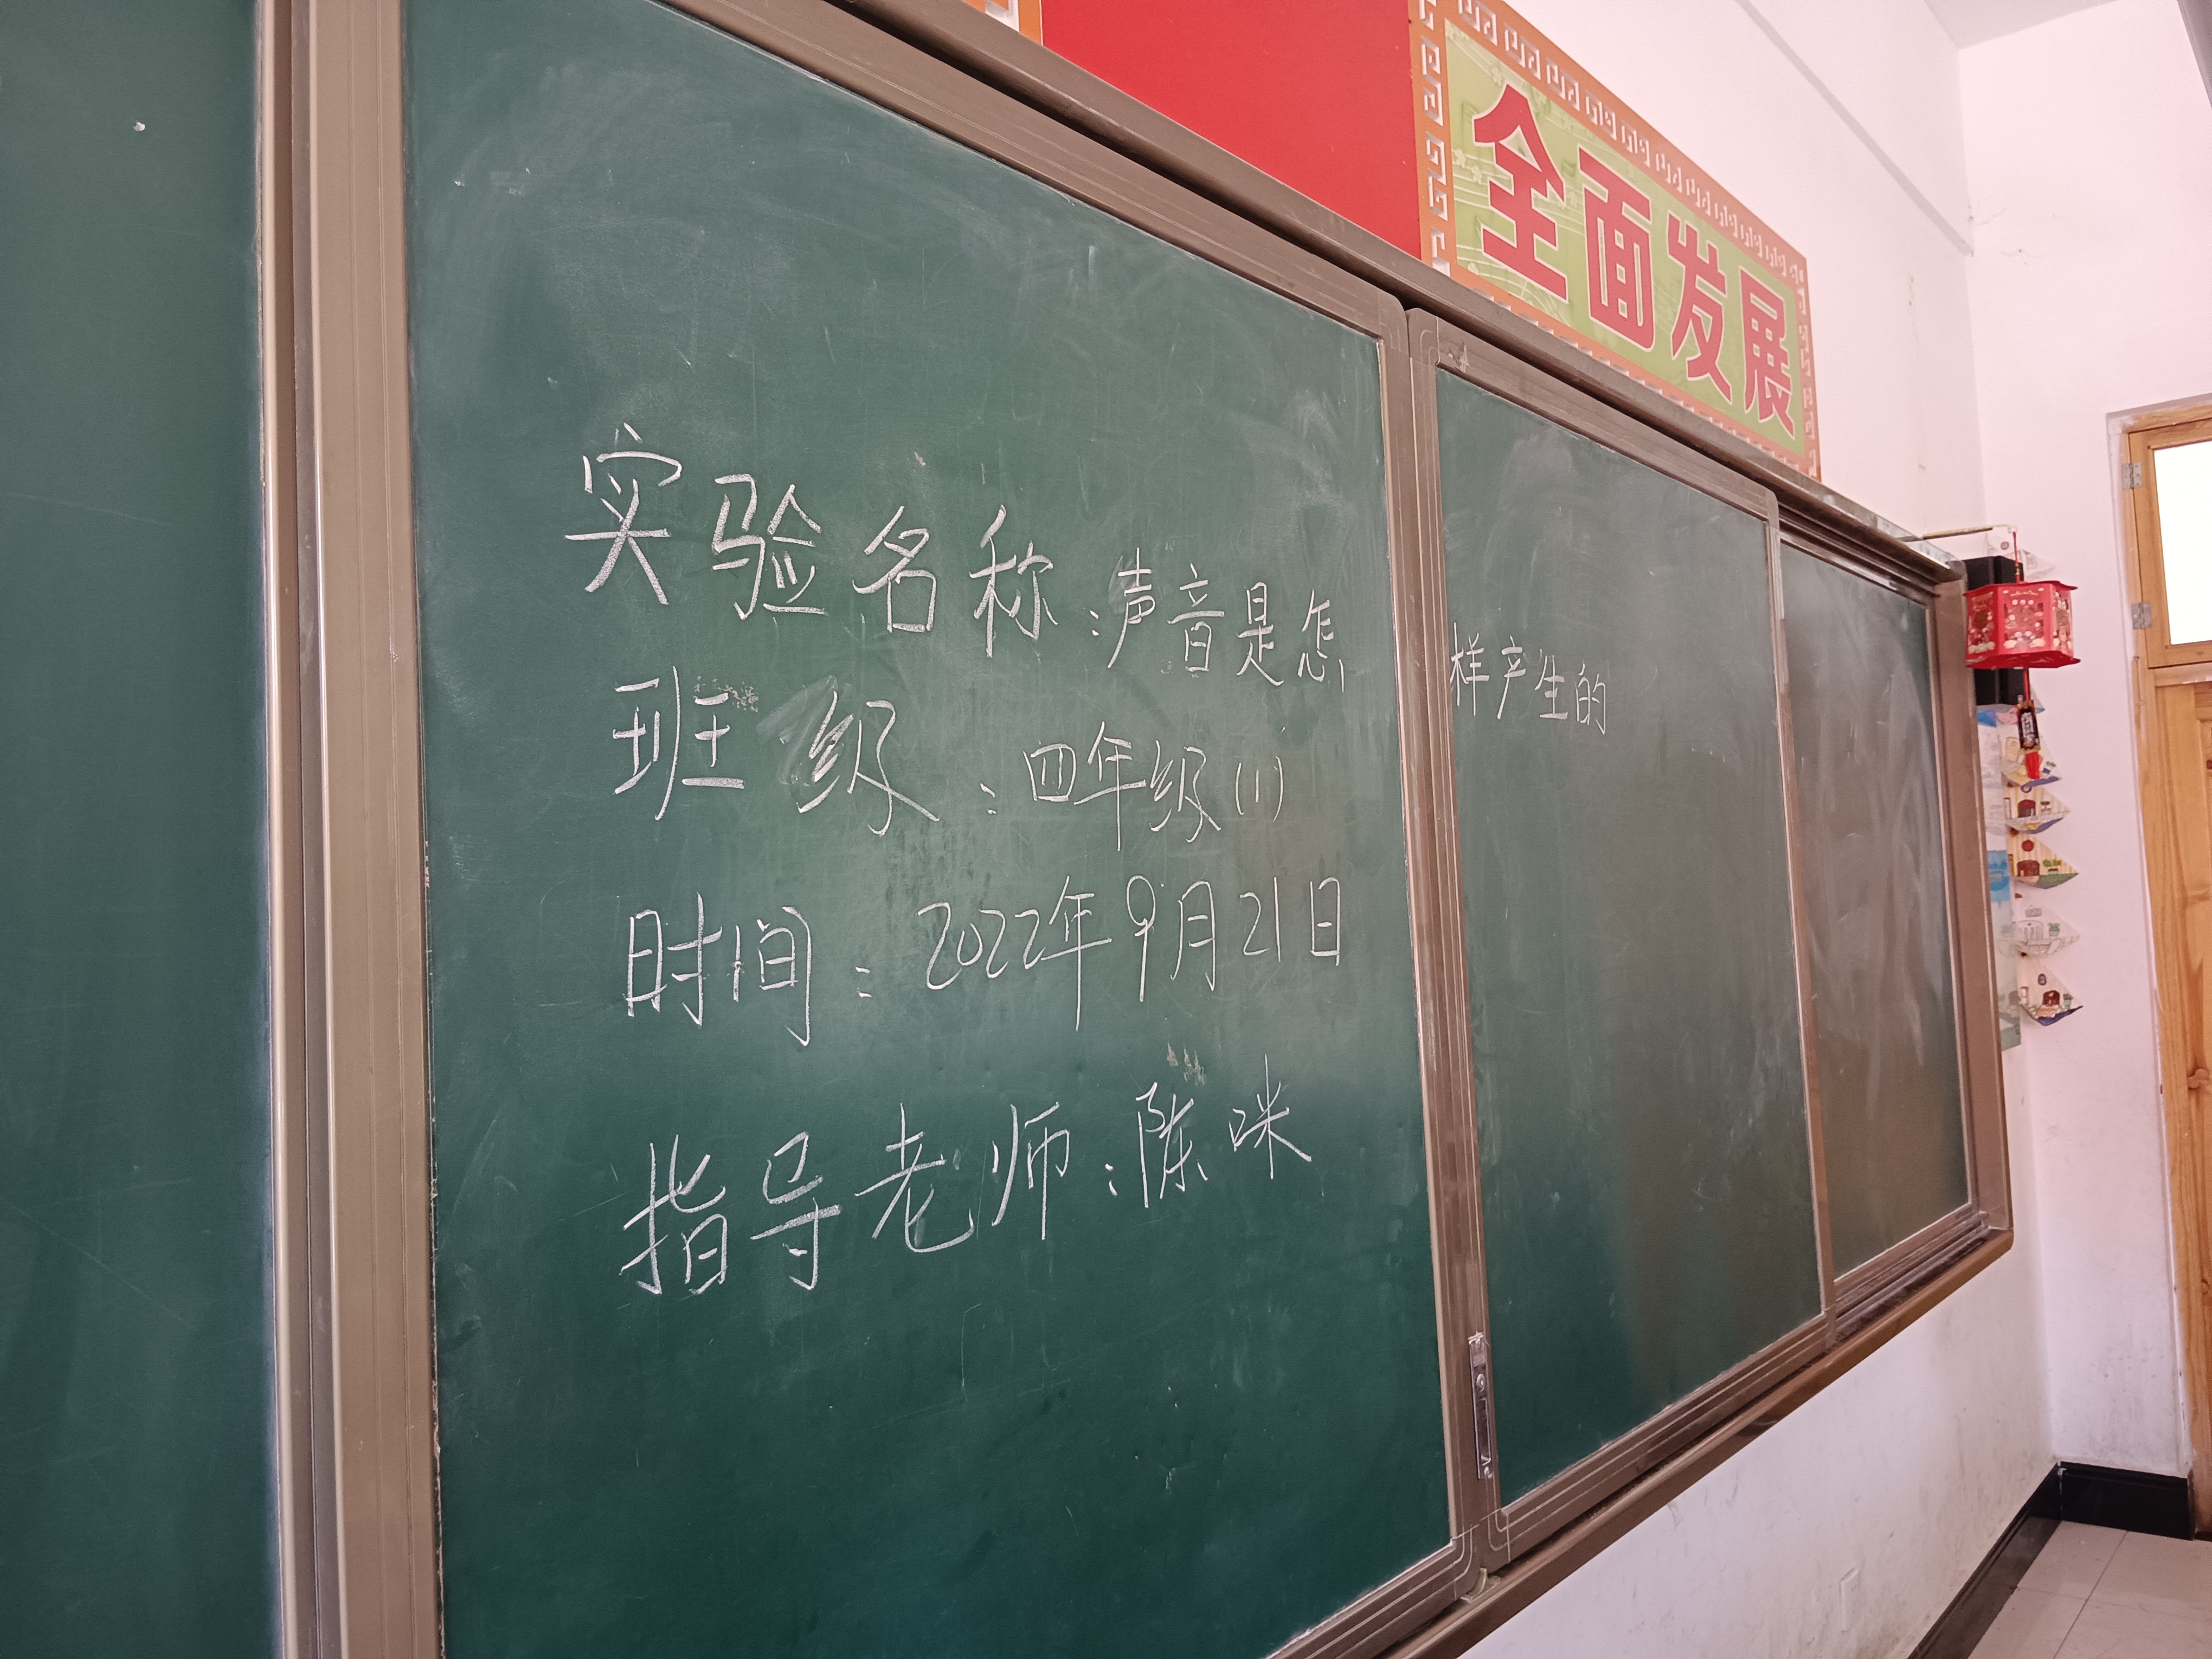 全面发展
实验名称:声音是怎样产生的
班级:四年级(1)
时间:2022年9月21日
指导老师:陈咪